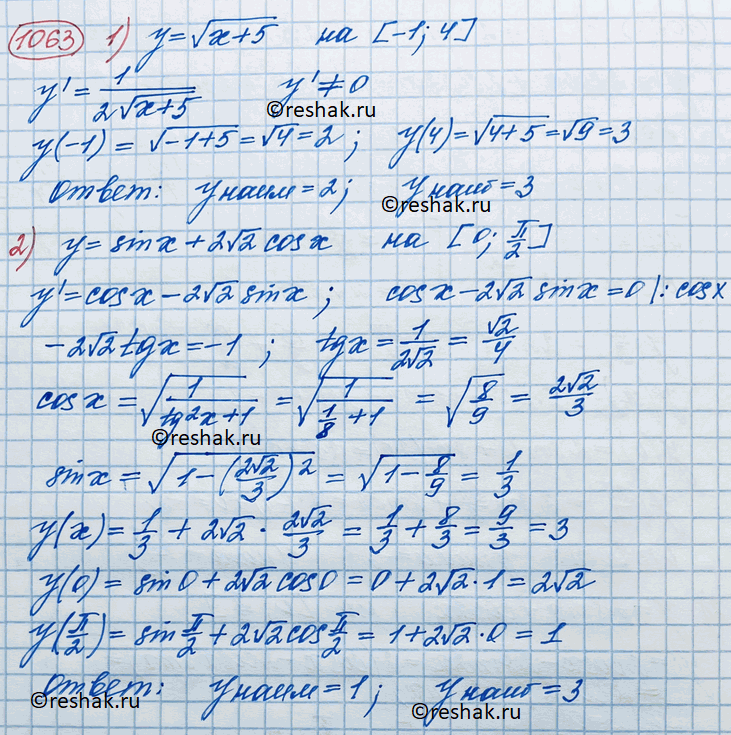 1063 1) y=√(x+5) на [-1; 4]
y'=1/(2√(x+5)) y'≠0
©reshak.ru
y(-1)=√(-1+5)=√4=2; y(4)=√(4+5)=√9=3
Ответ: y наим=2; y наиб=3
©reshak.ru
2) y=sinx+2√2 cosx на [0; π/2]
y'=cosx-2√2 sinx; cosx-2√2 sinx=0 |:cosx
-2√2 tgx=-1; tgx=1/(2√2)=√2/4
cosx=√(1/(tg²x+1))=√(1/(1/8+1))=√(8/9)=2√2/3
©reshak.ru
sinx=√(1-(2√2/3)²)=√(1-8/9)=1/3
y(x)=1/3+2√2·2√2/3=1/3+8/3=9/3=3
©reshak.ru
y(0)=sin0+2√2cos0=0+2√2·1=2√2
y(π/2)=sinπ/2+2√2cosπ/2=1+2√2·0=1
Ответ: y наим=1; y наиб=3
©reshak.ru ©reshak.ru